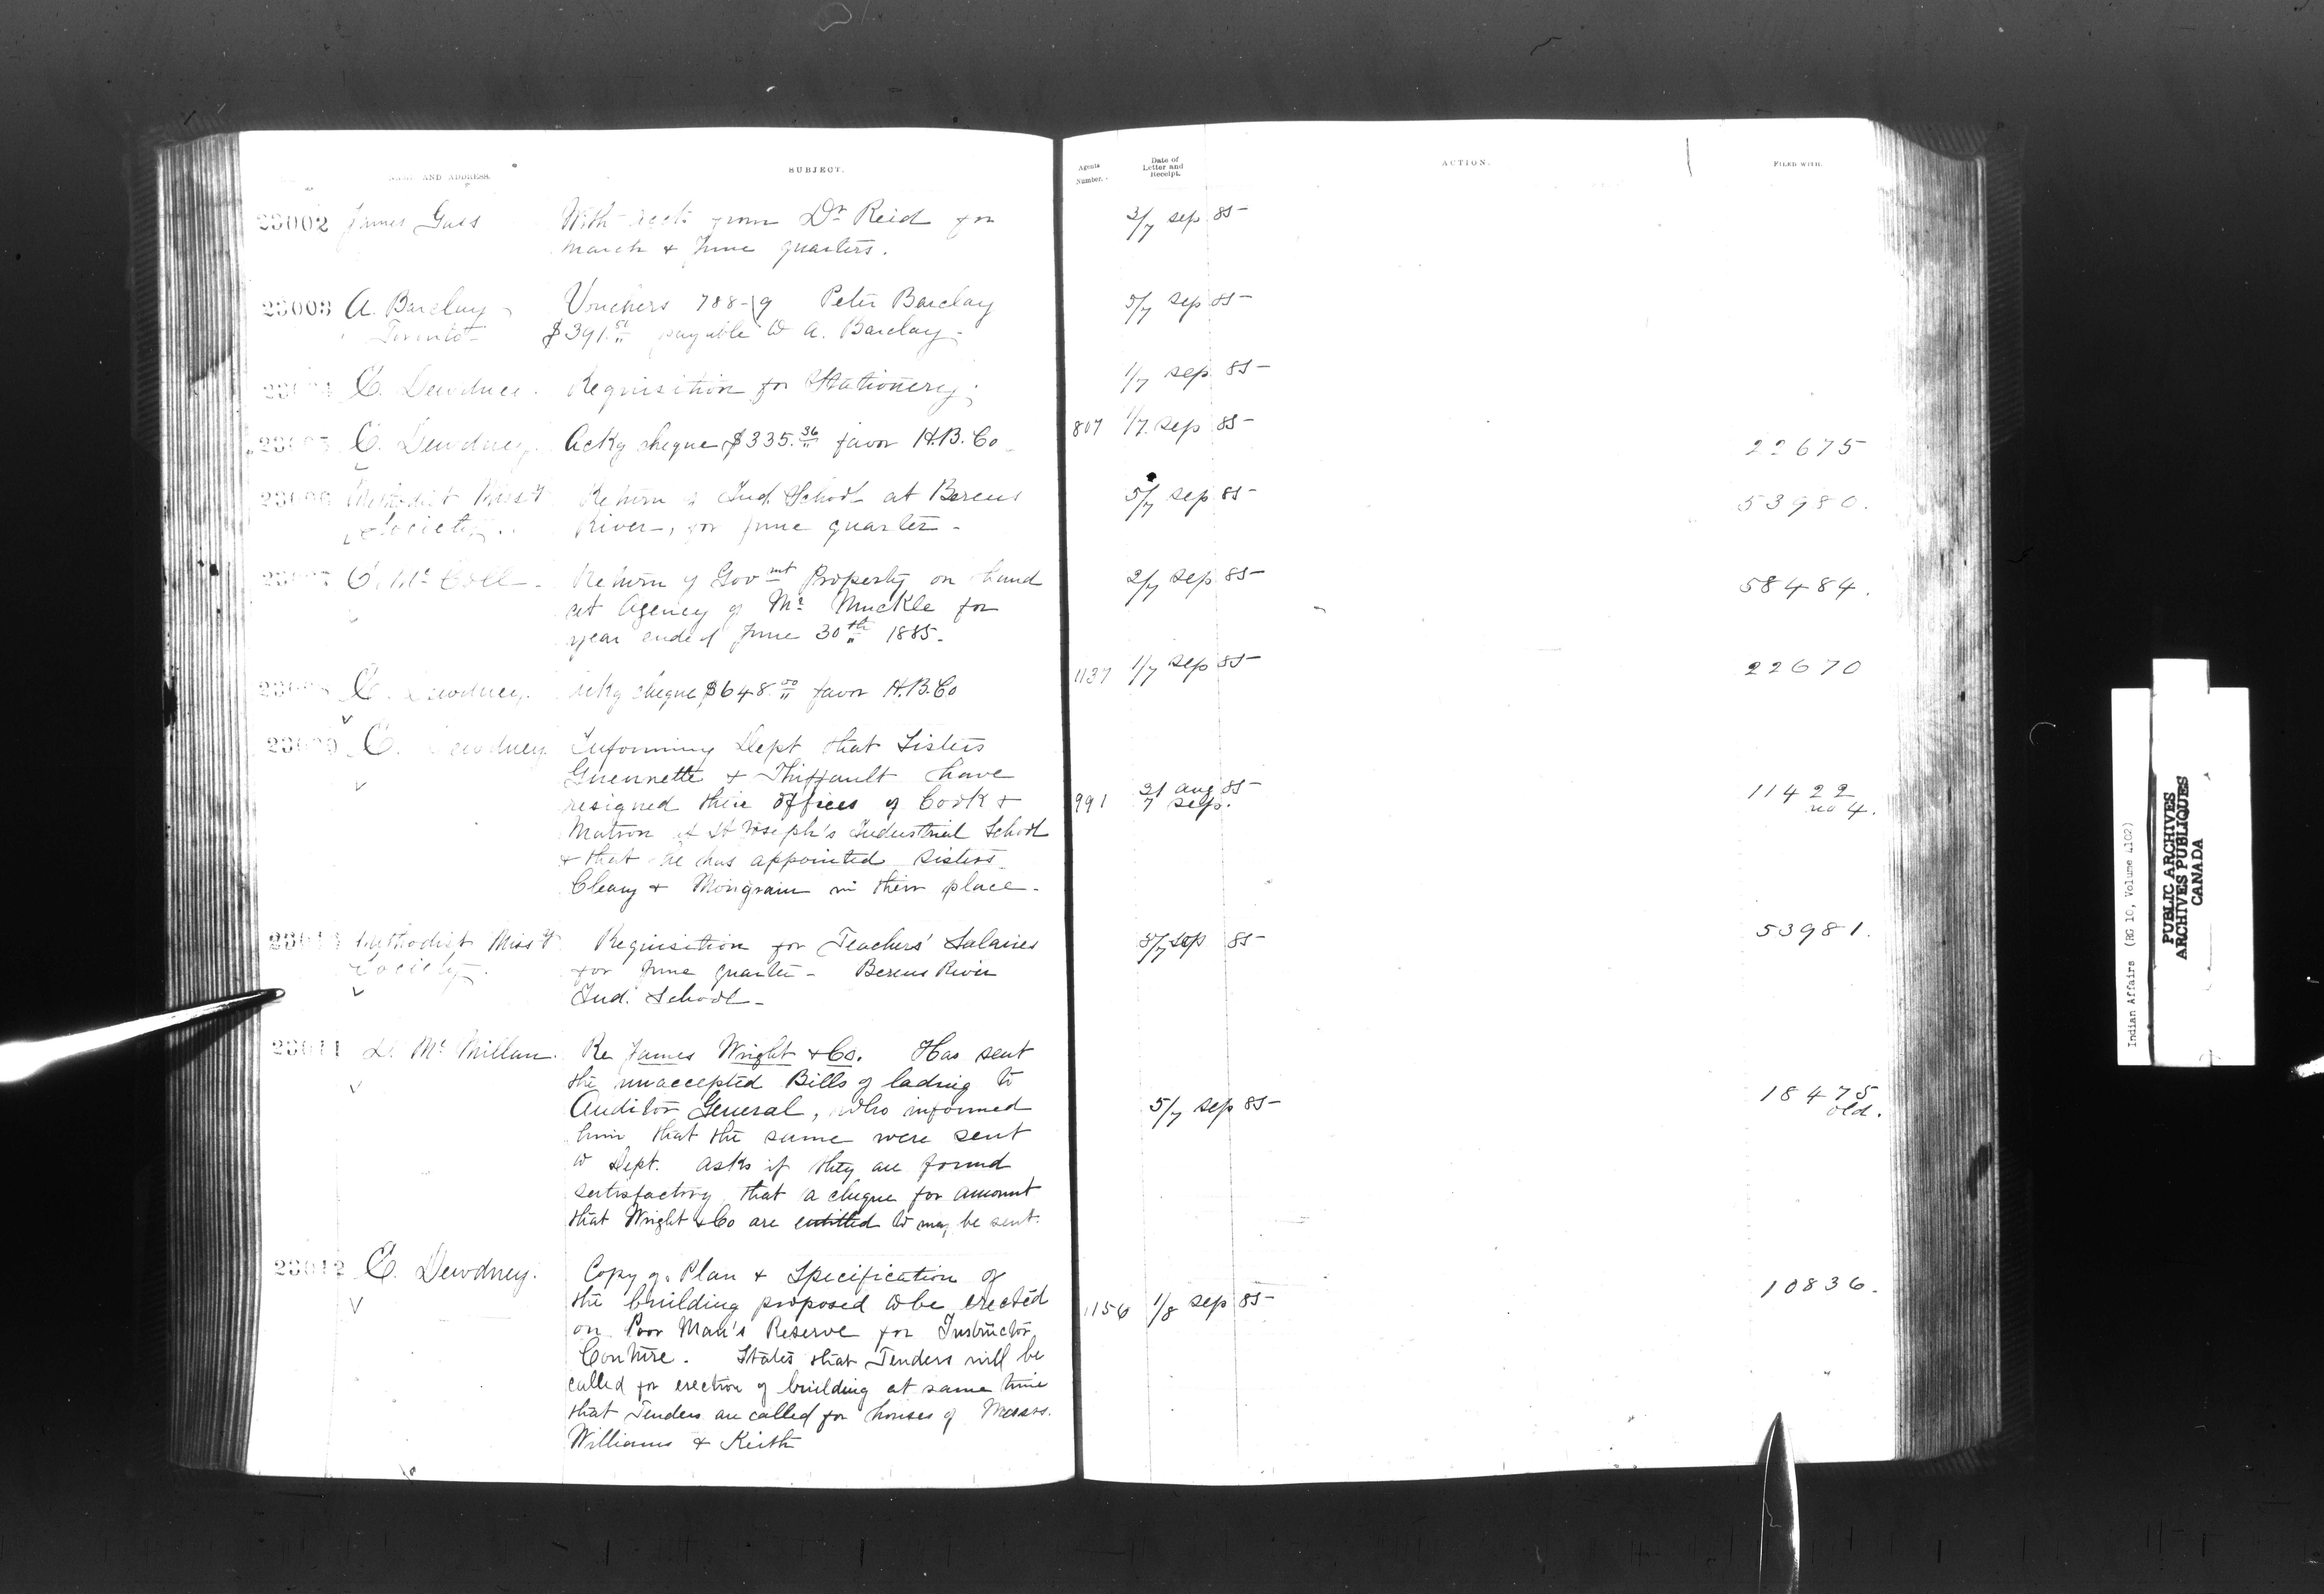 NAME AND ADDRESS.
SUBJECT.
Agents Number.
Date of Letter and Receipt.
ACTION.
FILED WITH.
23002 James
With accts from Dr Reid for
March & June quarters.
3/7 Sep 85
23003 A. Barclay
Toronto
Vouchers 788-9 Peter Barclay
$391. payable to A. Barclay.
5/7 Sep 85
E. Dewdney.
Requisition for Stationery.
1/7 Sep 85
E. Dewdney.
Ackg cheque $335.36 favor H.B. Co
807 1/7 Sep 85
22675
Methodist Missy
Society.
Return of Ind. School at Berens
River, for June quarter
5/7 Sep 85
53980.
E. McColl
Return of Govmt Property on hand
at Agency of Mr Muckle for
year ended June 30th 1885.
2/7 Sep 85
58484.
E. Dewdney.
Ackg cheque $648.00 favor H.B. Co
1137 1/7 Sep 85
22670
23009 E. Dewdney.
Informing Dept that Sisters
Guennette & Thiffault have
resigned their offices of Cook &
Matron of St Joseph's Industrial School
& that he has appointed Sisters
Cleary & Mongrain in their place.
991 31 Aug 85
7 Sep.
11422
no 4.
Methodist Missy
Society.
Requisition for Teachers' Salaries
for June quarter - Berens River
Ind. School
5/7 Sep 85
53981.
23011 D. McMillan.
Re James Wright & Co. Has sent
the unaccepted Bills of lading to
Auditor General, who informed
him that the same were sent
to Dept. Asks if they are found
satisfactory, that a cheque for amount
that Wright & Co are entitled to may be sent.
5/7 Sep 85
18475
old.
23012 E. Dewdney.
Copy of Plan & Specification of
the building proposed to be erected
on Poor Man's Reserve for Instructor
Couture. States that Tenders will be
called for erection of building at same time
that Tenders are called for houses of Messrs.
Williams & Keith
1156 1/8 Sep 85
10836.
Indian Affairs (RG 10, Volume 4102)
PUBLIC ARCHIVES
ARCHIVES PUBLIQUES
CANADA